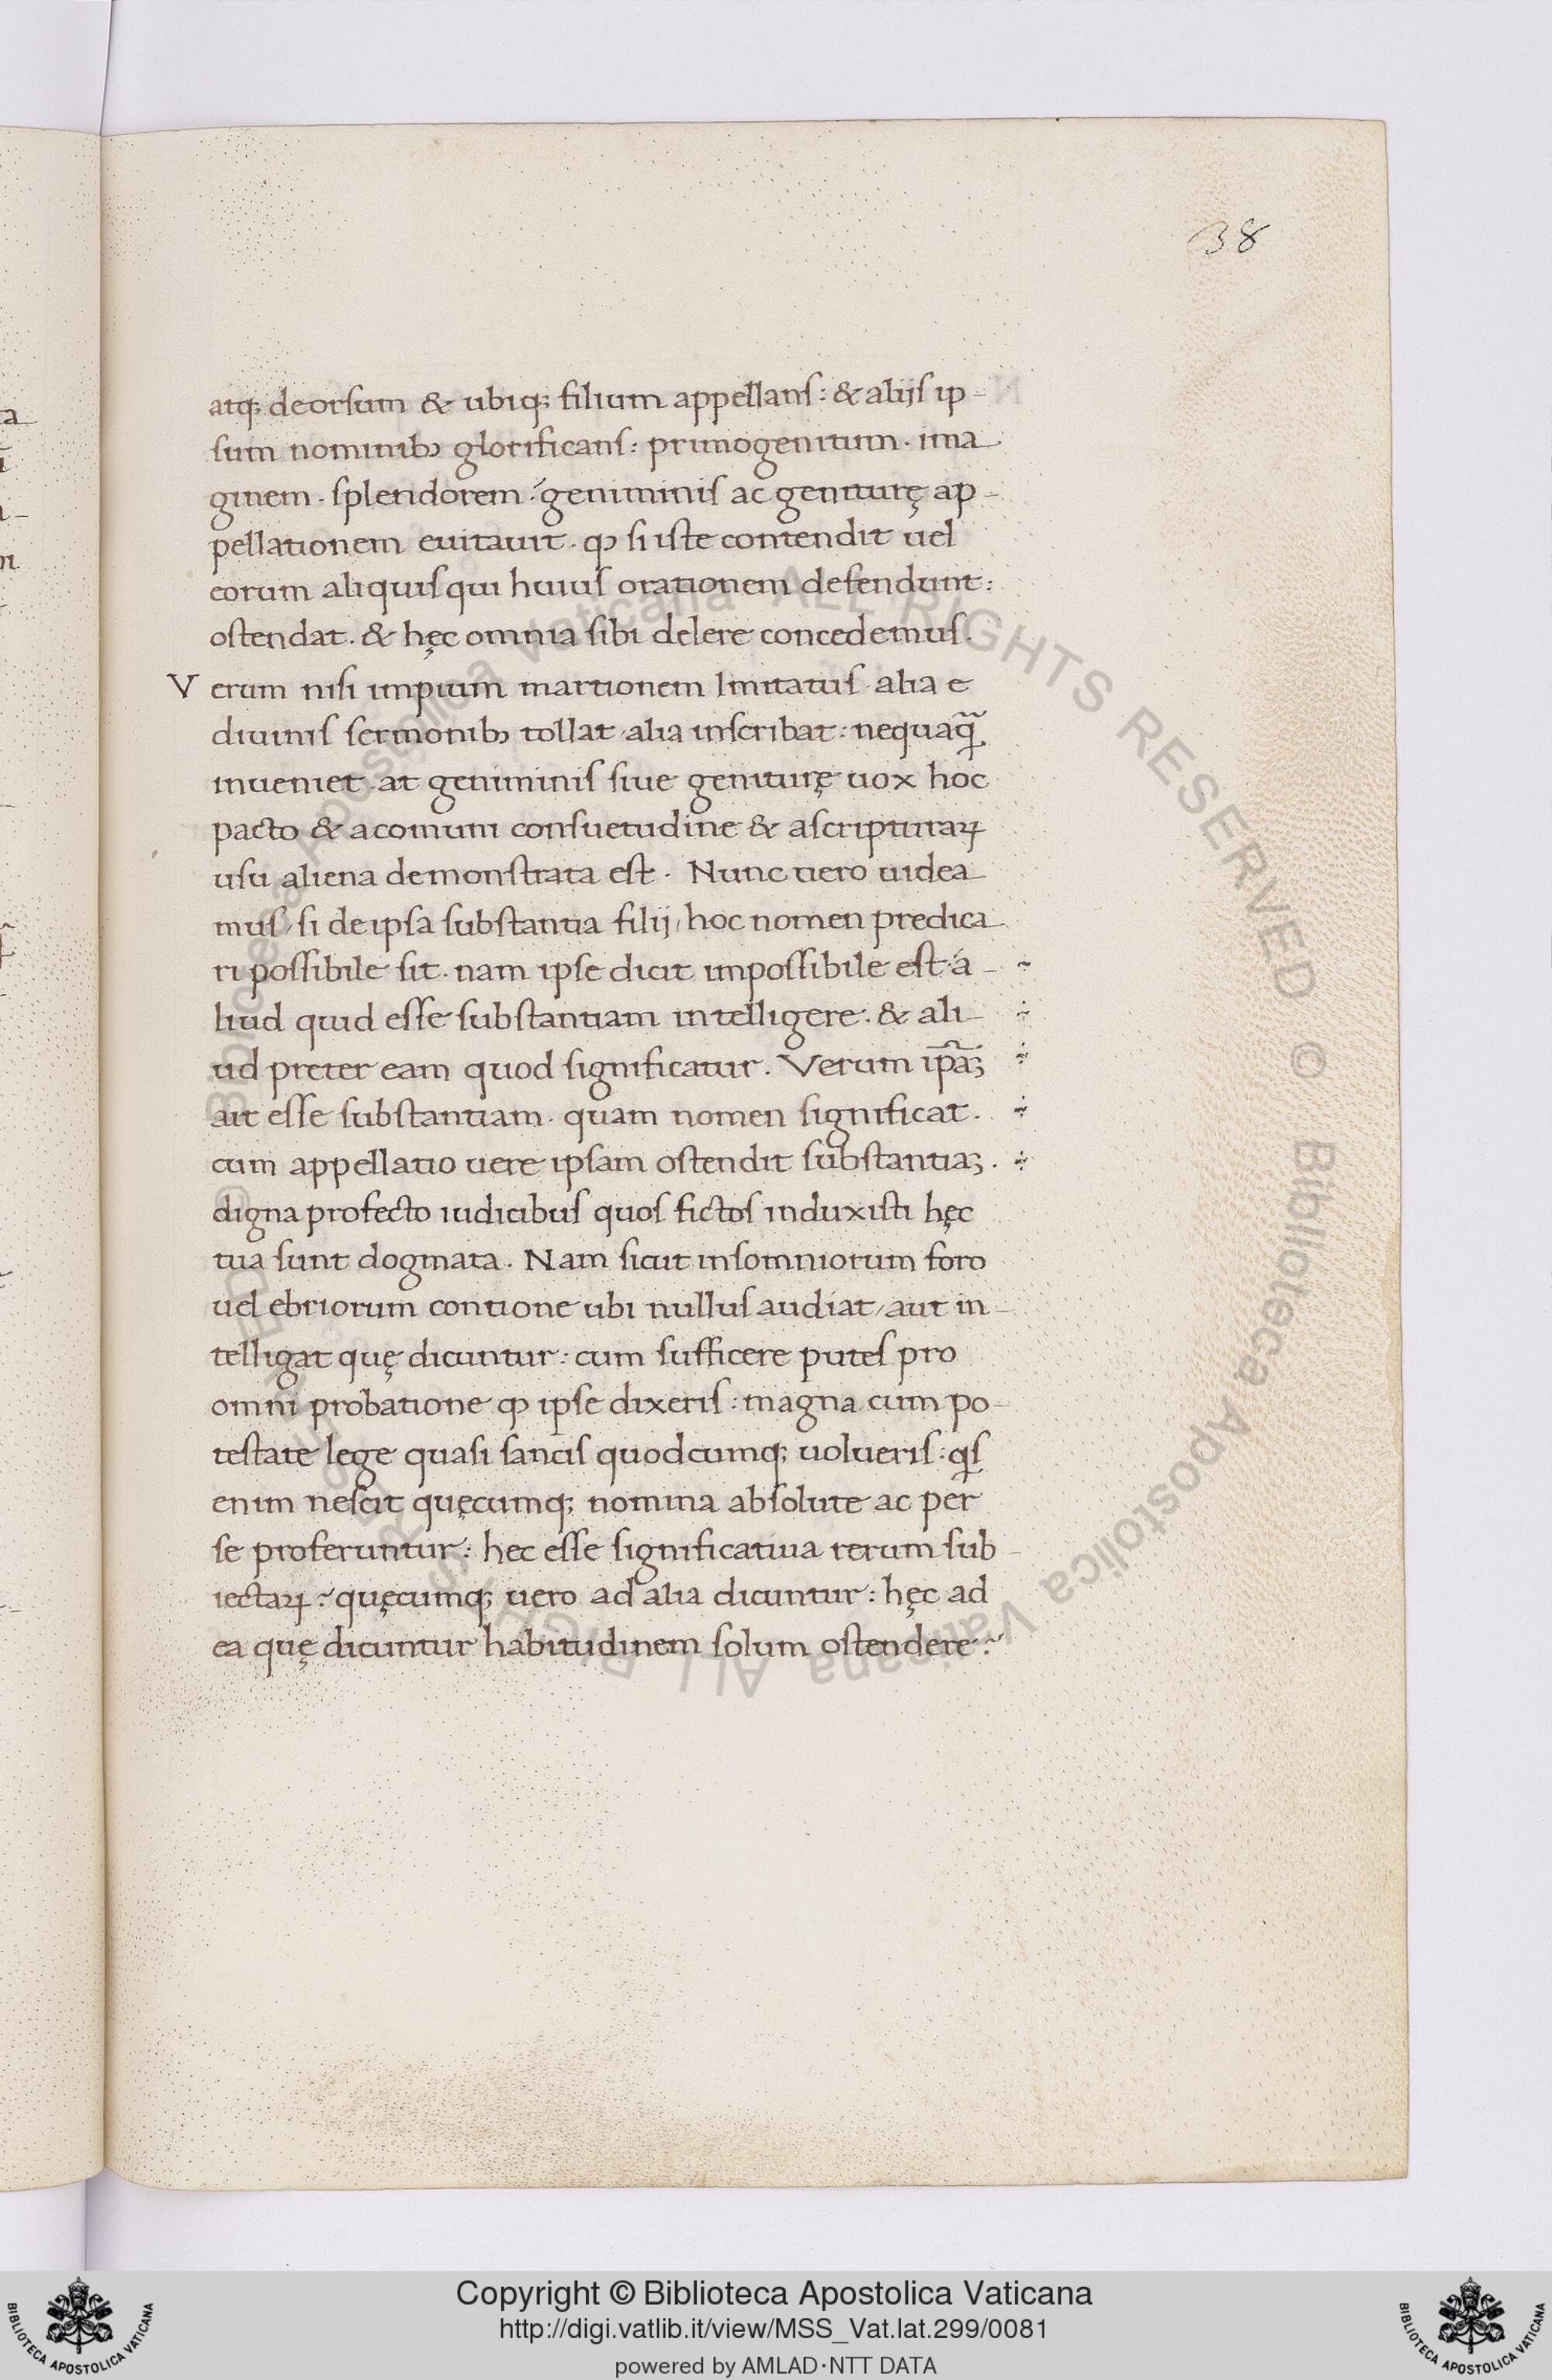 38
atq; deorsum & ubiq; filium appellans: & alijs ip-
sum nominibꝫ glorificans: primogenitum. ima
ginem. splendorem: geniminis ac geniturę ap-
pellationem euitauit. ꝙ si iste contendit uel
eorum aliquis qui huius orationem defendunt:
ostendat. & hęc omnia sibi delere concedemus.
Verum nisi impium martionem Imitatus alia e
diuinis sermonibꝫ tollat, alia inscribat: nequaq̃
inueniet. at geniminis siue geniturę uox hoc
pacto & a comuni consuetudine & a scripturaꝝ
usu aliena demonstrata est. Nunc uero uidea
mus, si de ipsa substantia filij, hoc nomen predica
ri possibile sit. nam ipse dicit impossibile est á-
liud quid esse substantiam intelligere. & ali-
ud preter eam quod significatur. Verum ip̃aꝫ
ait esse substantiam. quam nomen significat.
cum appellatio uere ipsam ostendit substantiaꝫ.
digna profecto iudicibus quos fictos induxisti hęc
tua sunt dogmata. Nam sicut insomniorum foro
uel ebriorum contione ubi nullus audiat, aut in-
telligat quę dicuntur: cum sufficere putes pro
omni probatione ꝙ ipse dixeris: magna cum po-
testate lege quasi sancis quodcumq; uolueris: qͥs
enim nescit quęcumq; nomina absolute ac per
se proferuntur: hec esse significatiua rerum sub-
iectaꝝ: quęcumq; uero ad alia dicuntur: hęc ad
ea quę dicuntur habitudinem solum ostendere:
Copyright © Biblioteca Apostolica Vaticana
http://digi.vatlib.it/view/MSS_Vat.lat.299/0081
powered by AMLAD·NTT DATA
BIBLIOTECA APOSTOLICA VATICANA
BIBLIOTECA APOSTOLICA VATICANA